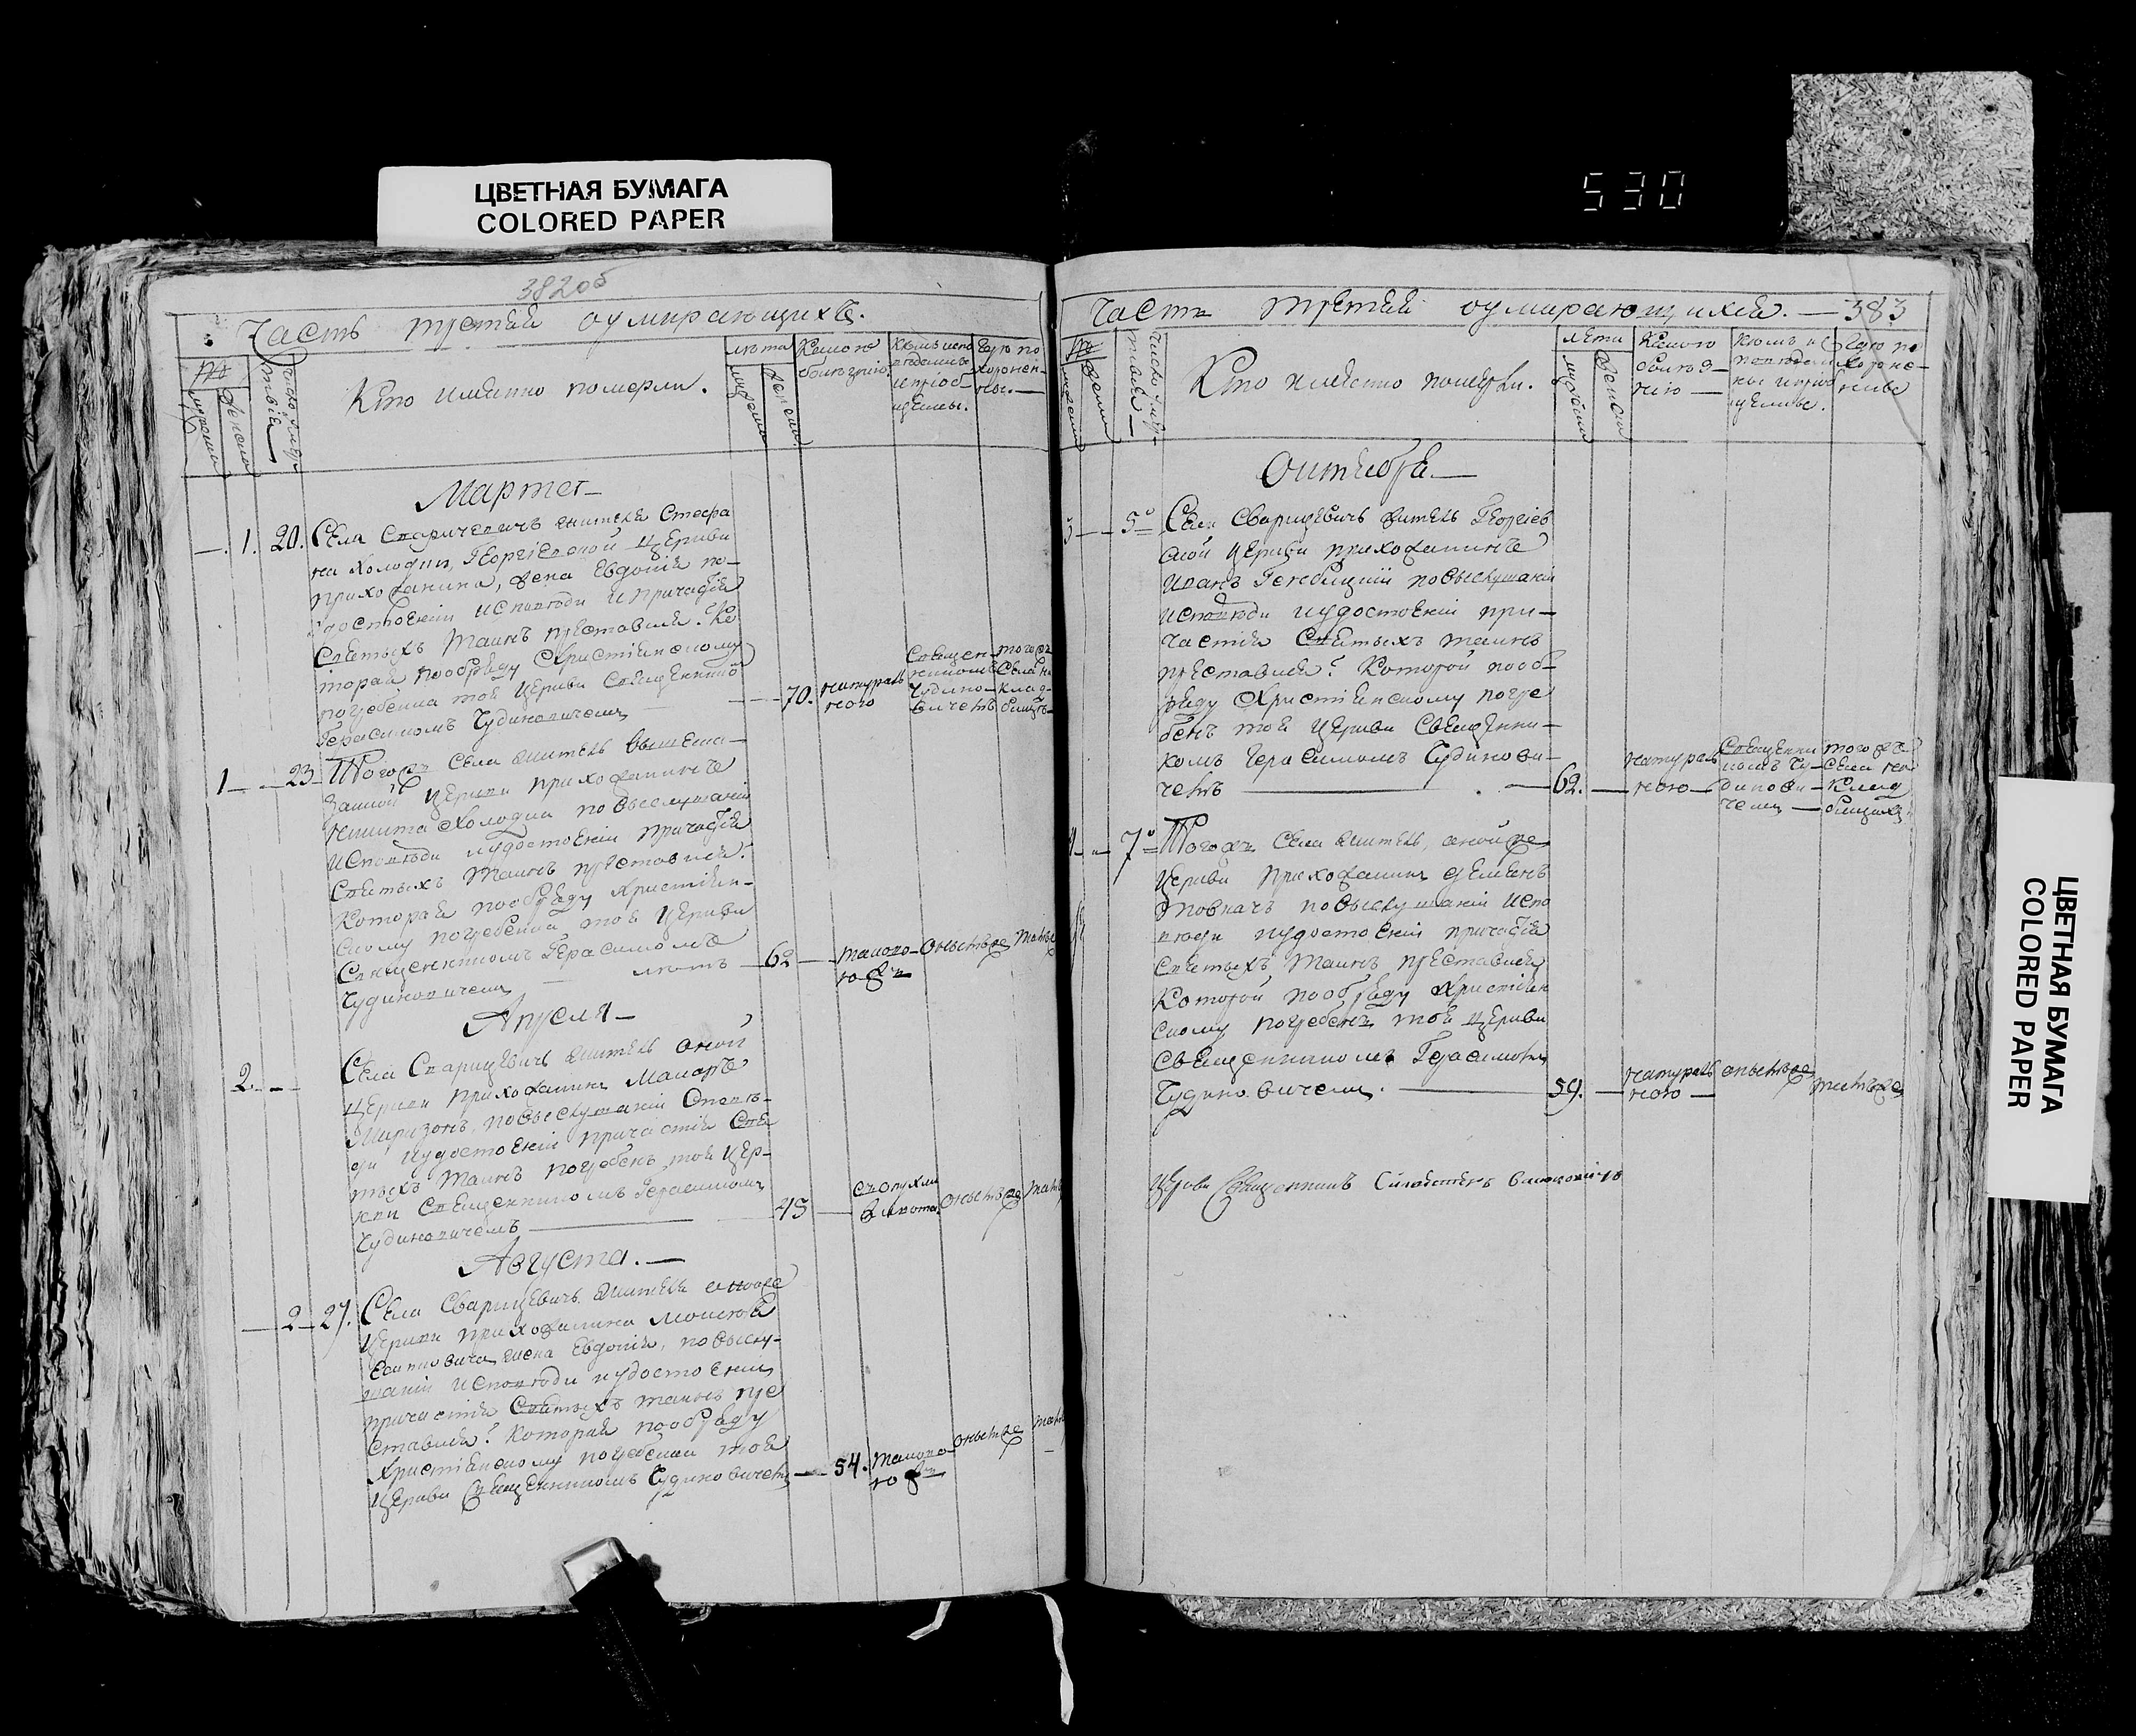 ЦВЕТНАЯ БУМАГА
COLORED PAPER
530
382об
Часть третия оумирающихъ.
Кто имянно померли.
лѣта
Какою
болѣзнію.
Кѣмъ испо
вѣданы
и пріоб
щены.
Гдѣ по
хоронен
ны.
Марта
1. 20. Села Сварицевичъ жителя Стефа
на Холодця, Георгіевской церкви
прихожанина, жена Евдокія по
удостоеніи исповѣди и причастія
Святыхъ Таинъ преставися. Ко
торая пообряду Христіянскому
погребенна тоя церкви Священнико
Герасимомъ Чудиновичемъ
70.
натураль
ною
Священ
никомъ
Чудино
вичемъ
тогожъ
села на
клад
бищѣ
1 23 Тогожъ села житель вышена
заной церкви прихожанинъ
Никита Холодця по выслушаніи
исповѣди и удостоеніи причастія
Святыхъ Таинъ преставися.
Которая пообряду христіян
скому погребенна тоя церкви
Священникомъ Герасимомъ
Чудиновичемъ лѣтъ
62
такою
южъ
онымъже
тамъже
Апреля
2. Села Сварицевичъ житель оной
церкви прихожанинъ Макаръ
по выслушаніи Исповѣ
ди и удостоеніи причастія Свя
тыхъ Таинъ погребенъ тоя цер
кви Священникомъ Герасимомъ
Чудиновичемъ
45
онымъже
Августа.
2 27. Села Сварицевичъ жителя оной же
церкви прихожанина Моисея
жена Евдокія, по выслу
шаніи исповѣди и удостоеніи
причастія Святыхъ таинъ пре
ставися? Которая пообряду
Христіянскому погребенна тоя
церкви Священникомъ Чудиновичемъ
54.
такою
южъ
онымъже
Часть третия оумирающихся. 383
Кто имянно померли.
лѣта
Какою
болѣз
нію
Кѣмъ ис
повѣдан
ны и приоб
щенны.
Гдѣ по
хороне
нны
Октября
5 Села Сварицевичъ житель Георгіев
ской церкви прихожанинъ
Иванъ по выслушаніи
исповѣди и удостоеніи при
частія Святыхъ таинъ
преставися? Которой пооб
ряду Христіянскому погре
бенъ тоя церкви Священни
комъ Герасимомъ Чудинови
чемъ
62.
натураль
ною
Священни
комъ Чу
динови
чемъ
тогожъ
села на
клад
бищѣ
7 Тогожъ села житель, оной же
церкви прихожанинъ Демянъ
Товкачъ по выслушаніи испо
вѣди и удостоеніи причастія
Святыхъ Таинъ преставися
Которой пообряду Христіян
скому погребенъ тоя церкви
Священникомъ Герасимомъ
Чудиновичемъ.
59.
натураль
ною
онымъже
тамъже
ЦВЕТНАЯ БУМАГА
COLORED PAPER